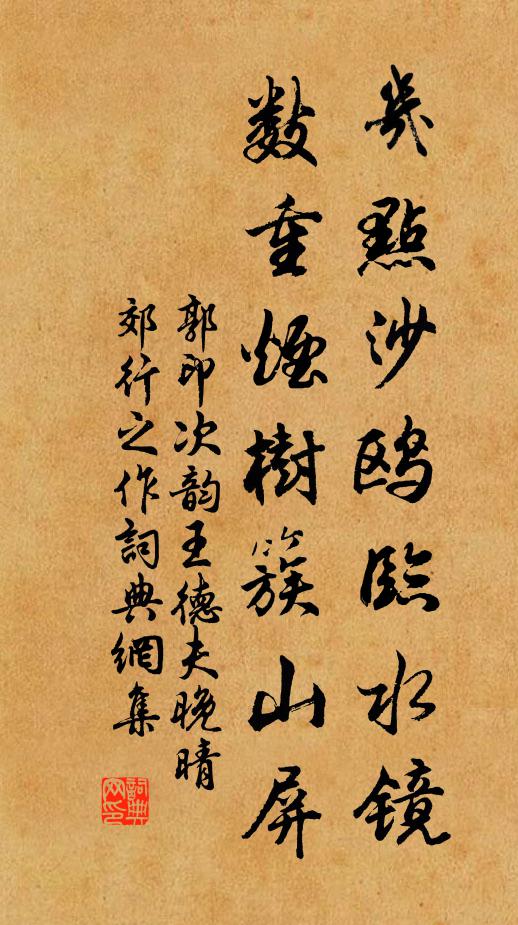 幾點沙鸥臨水镜
数重煙樹簇山屏
郭印次韵王德夫晚晴
郊行之作詞典網集
詞典网印